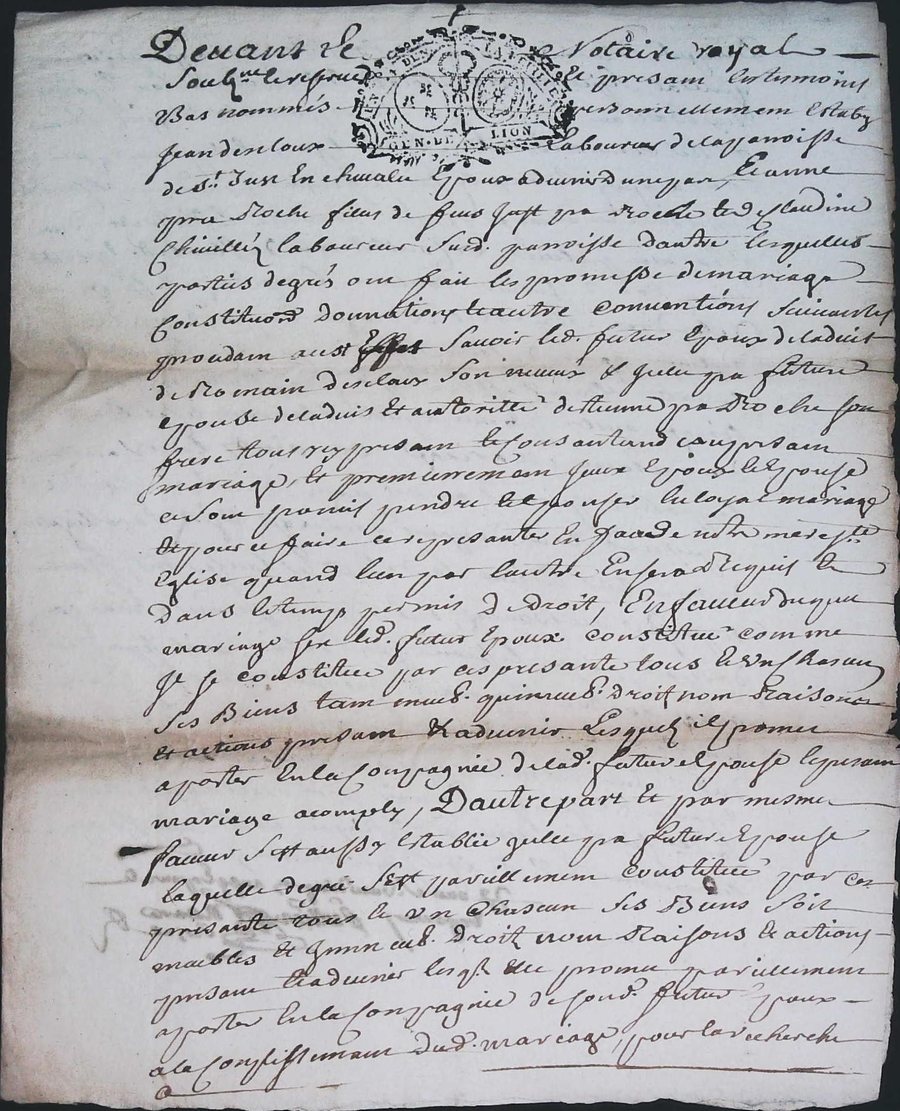 Devant le Notaire royal
Soubne et presam les temoins
Bas nommés personnellement establ
Jean desloux laboureur de la parroisse
de St. Just En chevalu Epoux advenir d'une par, Et anne
pra Roche filus de feus Just pra Roche et de Claudine
laboureur Sud. parroisse dautre lesquelles
parties degrés ont fait les promesse de mariage
Constituon donnations et autre conventions Suivantes
Savoir led. futur Epoux de ladvis
de Romain desloux Son neveux & futture
Epouse de ladvis et autoritté de pra Roche Son
frere tous icy presam et Consantand au presam
mariage, et premierremam Epoux et Epouse
ce Som promis prendre et Epouser En loyal mariage
et pour ce faire ce represanter En face de notre mere ste
Eglise quand lun par lautre En sera Requis et
dans le temps permis de droit, En faveur duquel
mariage led. futur Epoux constitué comme
Il se constitue par ces presante tous et un chascun
Ses Biens tam meub. qu'inmeub. droit nom Raisons
et actions presam & advenir Lesquels il promet
aporter En la Compagnie de lad. future Epouse le presam
mariage acomply, D'autre part Et par mesme
faveur Sest aussy Establie future Epouse
laquelle degré Sest parellemem constitué par ces
presante tous et un Chascun Ses Biens Soit
meubles et Inmeub. droit nom Raisons et actions
presam et advenir lesqls elle promet parellement
aporter En la Compagnie de Sond. futur Epoux
a la Complissemam dud. mariage, pour la recherche
GEN. DE LION